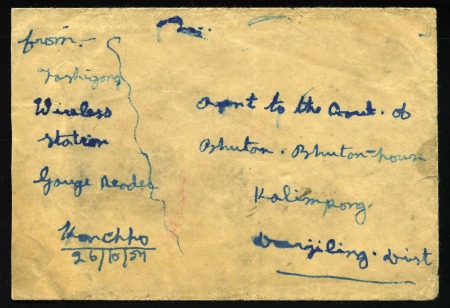 from:-
Tashigong
Wireless
Station
Gauge Reader
Kanchho
26/10/57
Agent to the Govt. of
Bhutan. Bhutan-house
Kalimpong.
Darjiling. Dist